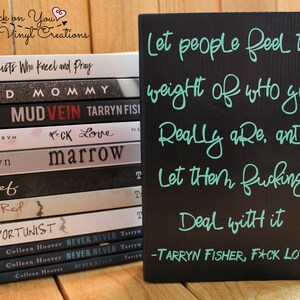 ck on You
Vinyl Creations
usts Who Kneel and Pray
D MOMMY
MUD VEIN TARRYN FISH
F*CK Love
marrow
ef
Red
PORTUNIST
Colleen Hoover NEVER NEVER
Colleen Hoover NEVER NEVER
Colleen Hoover
Let people feel t
weight of who yo
Really are, and
Let them fucking
Deal with it
-TARRYN FISHER, F*CK LO